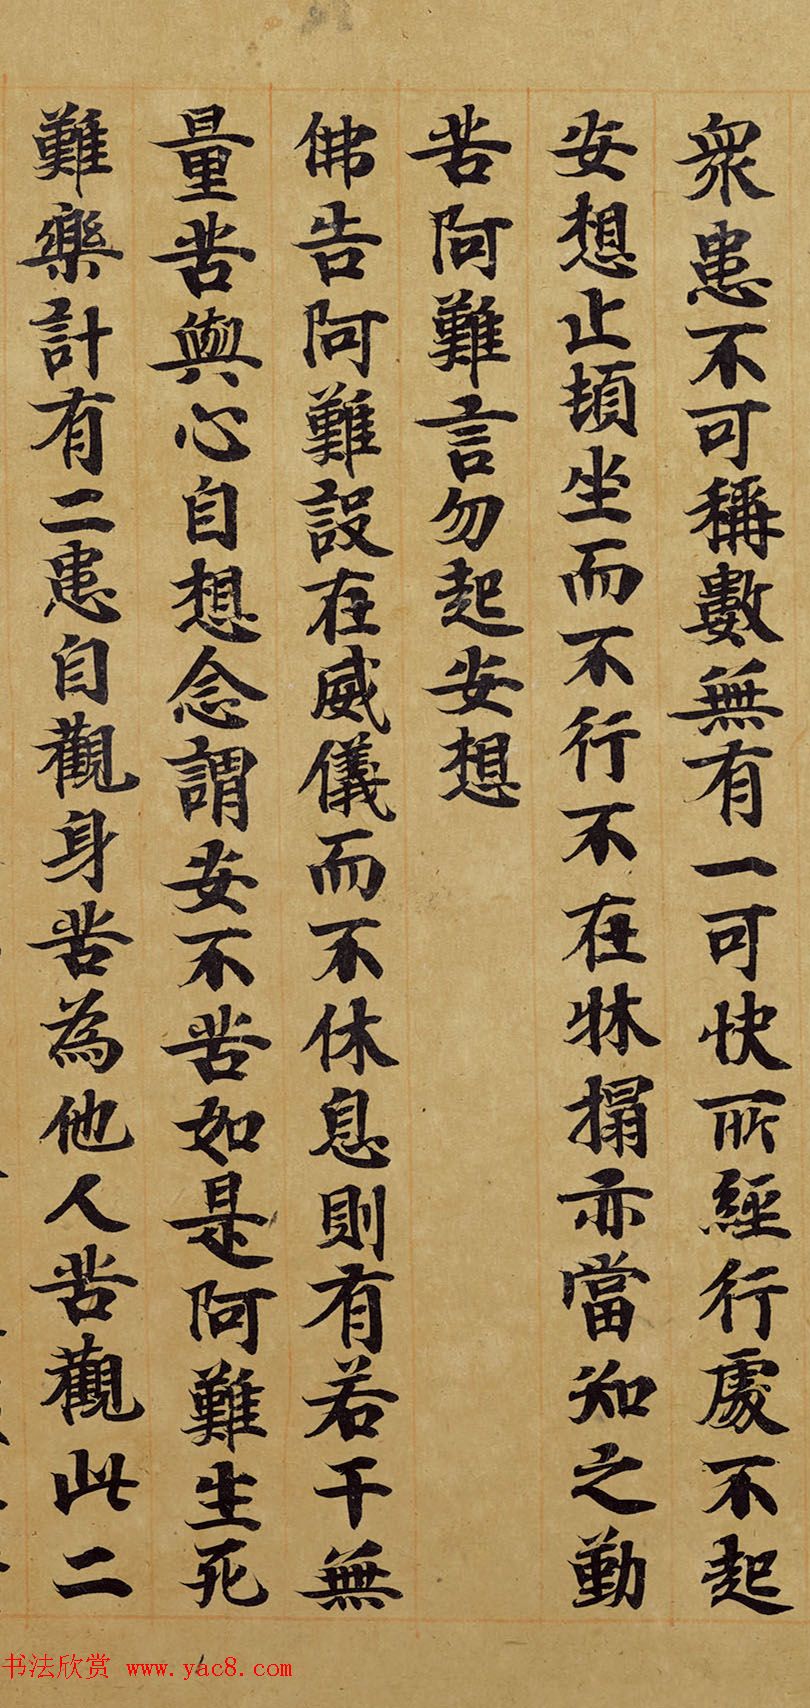 衆患不可稱數無有一可快所經行處不起
安想止頓坐而不行不在牀榻亦當知之勤
苦阿難言勿起安想
佛告阿難設在威儀而不休息則有若干無
量苦與心自想念謂安不苦如是阿難生死
難樂計有二患自觀身苦為他人苦觀此二
书法欣赏 www.yac8.com